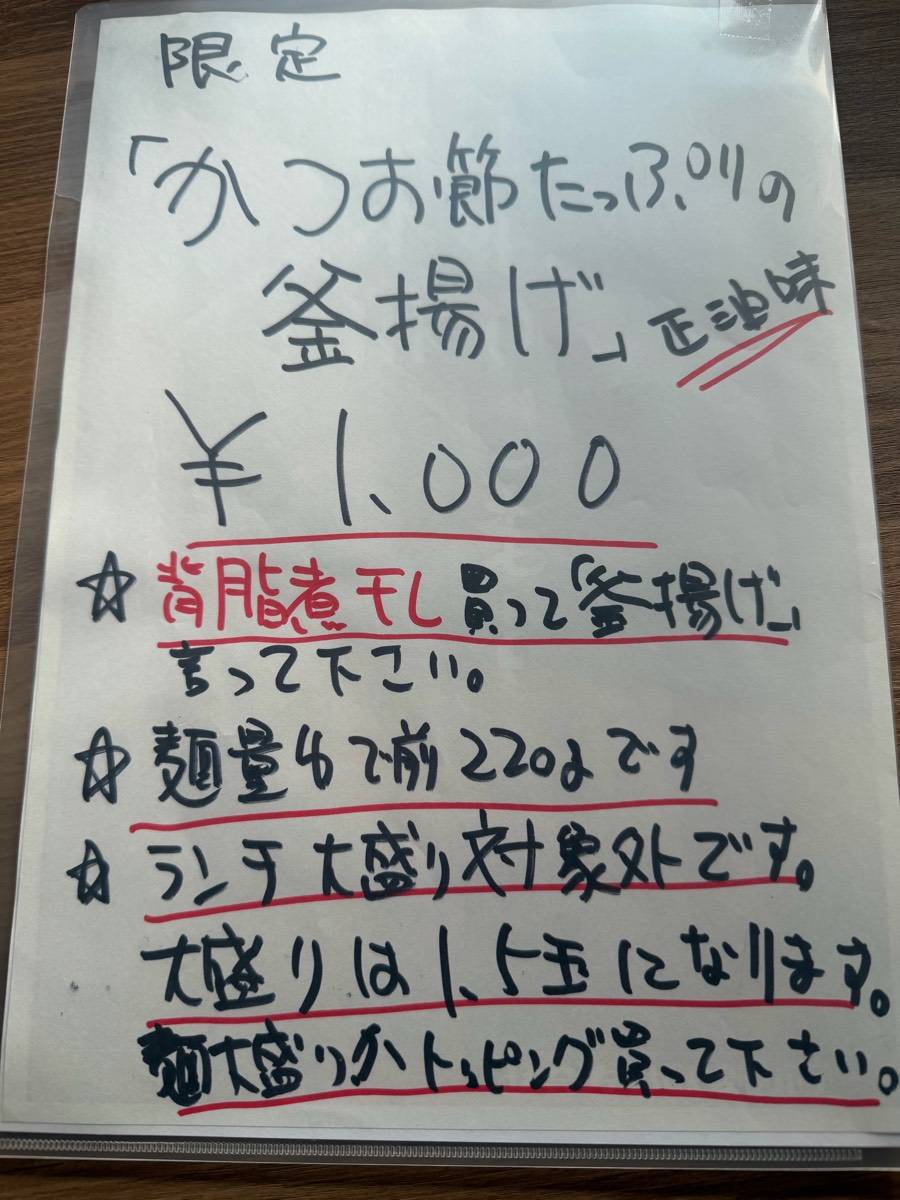 限定
「かつお節たっぷりの
釜揚げ」正油味
¥1,000
☆背脂煮干し買って「釜揚げ」
言って下さい。
☆麺量ゆで前220gです
☆ランチ大盛り対象外です。
大盛りは1,5玉になります。
麺大盛りかトッピング買って下さい。